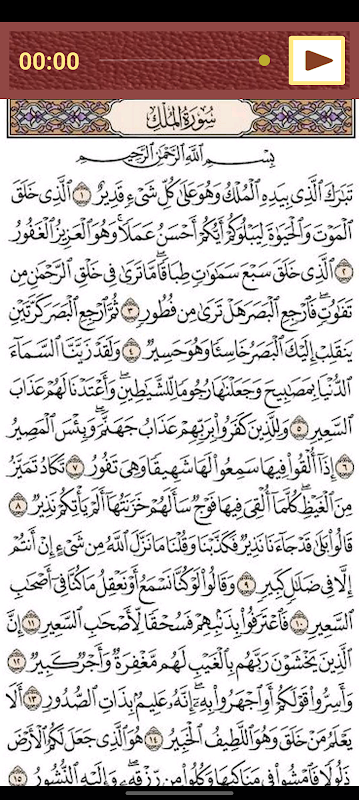 00:00
سُورَةُ الْمُلْكِ
بِسْمِ اللَّهِ الرَّحْمَٰنِ الرَّحِيمِ
تَبَارَكَ الَّذِي بِيَدِهِ الْمُلْكُ وَهُوَ عَلَىٰ كُلِّ شَيْءٍ قَدِيرٌ ١ الَّذِي خَلَقَ
الْمَوْتَ وَالْحَيَوٰةَ لِيَبْلُوَكُمْ أَيُّكُمْ أَحْسَنُ عَمَلًا ۚ وَهُوَ الْعَزِيزُ الْغَفُورُ
٢ الَّذِي خَلَقَ سَبْعَ سَمَٰوَٰتٍ طِبَاقًا ۖ مَّا تَرَىٰ فِي خَلْقِ الرَّحْمَٰنِ مِن
تَفَٰوُتٍ ۖ فَارْجِعِ الْبَصَرَ هَلْ تَرَىٰ مِن فُطُورٍ ٣ ثُمَّ ارْجِعِ الْبَصَرَ كَرَّتَيْنِ
يَنقَلِبْ إِلَيْكَ الْبَصَرُ خَاسِئًا وَهُوَ حَسِيرٌ ٤ وَلَقَدْ زَيَّنَّا السَّمَاءَ
الدُّنْيَا بِمَصَٰبِيحَ وَجَعَلْنَٰهَا رُجُومًا لِّلشَّيَٰطِينِ ۖ وَأَعْتَدْنَا لَهُمْ عَذَابَ
السَّعِيرِ ٥ وَلِلَّذِينَ كَفَرُوا بِرَبِّهِمْ عَذَابُ جَهَنَّمَ ۖ وَبِئْسَ الْمَصِيرُ
٦ إِذَا أُلْقُوا فِيهَا سَمِعُوا لَهَا شَهِيقًا وَهِيَ تَفُورُ ٧ تَكَادُ تَمَيَّزُ
مِنَ الْغَيْظِ ۖ كُلَّمَا أُلْقِيَ فِيهَا فَوْجٌ سَأَلَهُمْ خَزَنَتُهَا أَلَمْ يَأْتِكُمْ نَذِيرٌ ٨
قَالُوا بَلَىٰ قَدْ جَاءَنَا نَذِيرٌ فَكَذَّبْنَا وَقُلْنَا مَا نَزَّلَ اللَّهُ مِن شَيْءٍ إِنْ أَنتُمْ
إِلَّا فِي ضَلَٰلٍ كَبِيرٍ ٩ وَقَالُوا لَوْ كُنَّا نَسْمَعُ أَوْ نَعْقِلُ مَا كُنَّا فِي أَصْحَٰبِ
السَّعِيرِ ١٠ فَاعْتَرَفُوا بِذَنبِهِمْ فَسُحْقًا لِّأَصْحَٰبِ السَّعِيرِ ١١ إِنَّ
الَّذِينَ يَخْشَوْنَ رَبَّهُم بِالْغَيْبِ لَهُم مَّغْفِرَةٌ وَأَجْرٌ كَبِيرٌ ١٢
وَأَسِرُّوا قَوْلَكُمْ أَوِ اجْهَرُوا بِهِ ۖ إِنَّهُ عَلِيمٌ بِذَاتِ الصُّدُورِ ١٣ أَلَا
يَعْلَمُ مَنْ خَلَقَ وَهُوَ اللَّطِيفُ الْخَبِيرُ ١٤ هُوَ الَّذِي جَعَلَ لَكُمُ الْأَرْضَ
ذَلُولًا فَامْشُوا فِي مَنَاكِبِهَا وَكُلُوا مِن رِّزْقِهِ ۖ وَإِلَيْهِ النُّشُورُ ١٥